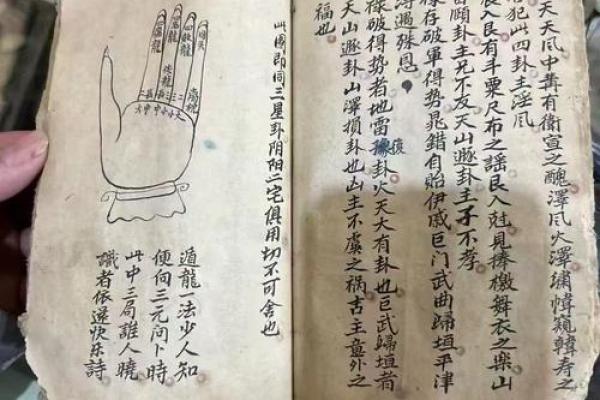 天天風中冓有衛宣之醜澤風火澤幃窺韓寿之
犯此四卦主淫風
艮入艮有斗粟尺布之謡艮入兑見捧檄舞衣之楽山
雷頤卦主兄不友天山遯卦主子不孝
祿存破軍得势晁錯自贻伊戚巨门武曲歸垣平津
過殊恩
祿破得势者地雷豫復卦火天大有卦也巨武歸垣者
天山遯卦山澤損卦也凶主不虞之祸吉主意外之
福也
此圖即同三星卦阴阳二宅俱用切不可舍也
遁龍一法少人知
便向三元问卜時
此中三局誰人曉
識者依快乐詩